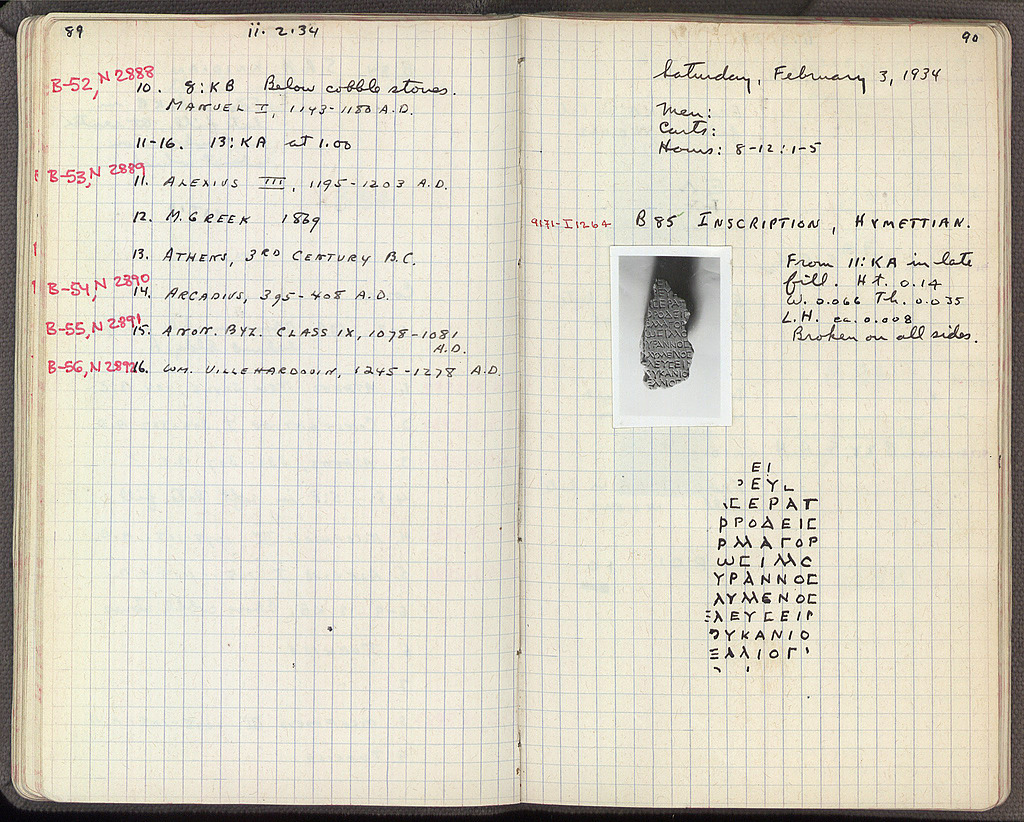 89
ii. 2.34
B-52, N 2888
10. 8:KB Below cobble stones.
MANUEL I, 1143-1180 A.D.
11-16. 13:KA at 1.00
B-53, N 2889
11. ALEXIUS III, 1195-1203 A.D.
12. M. GREEK 1869
13. ATHENS, 3RD CENTURY B.C.
B-54, N 2890
14. ARCADIUS, 395-408 A.D.
B-55, N 2891
15. ANON. BYZ. CLASS IX, 1078-1081
A.D.
B-56, N 2892
16. WM. VILLEHARDOUIN, 1245-1278 A.D.
90
Saturday, February 3, 1934
Men:
Carts:
Hours: 8-12:1-5
9171-I 1264
B 85 INSCRIPTION, HYMETTIAN.
From 11:KA in late
fill. Ht. 0.14
W. 0.066 Th. 0.035
L.H. ca. 0.008
Broken on all sides.
ΕΙ
ΕΥ
ΕΡΑΤ
ΡΡΟΔΕΙϹ
ΡΜΑΓΟΡ
ωϹΙΜϹ
ΥΡΑΝΝΟϹ
ΛΥΜΕΝΟϹ
ΛΕΥϹΕΙΡ
ΥΚΑΝΙΟ
ΞΛΛΙΟΓ